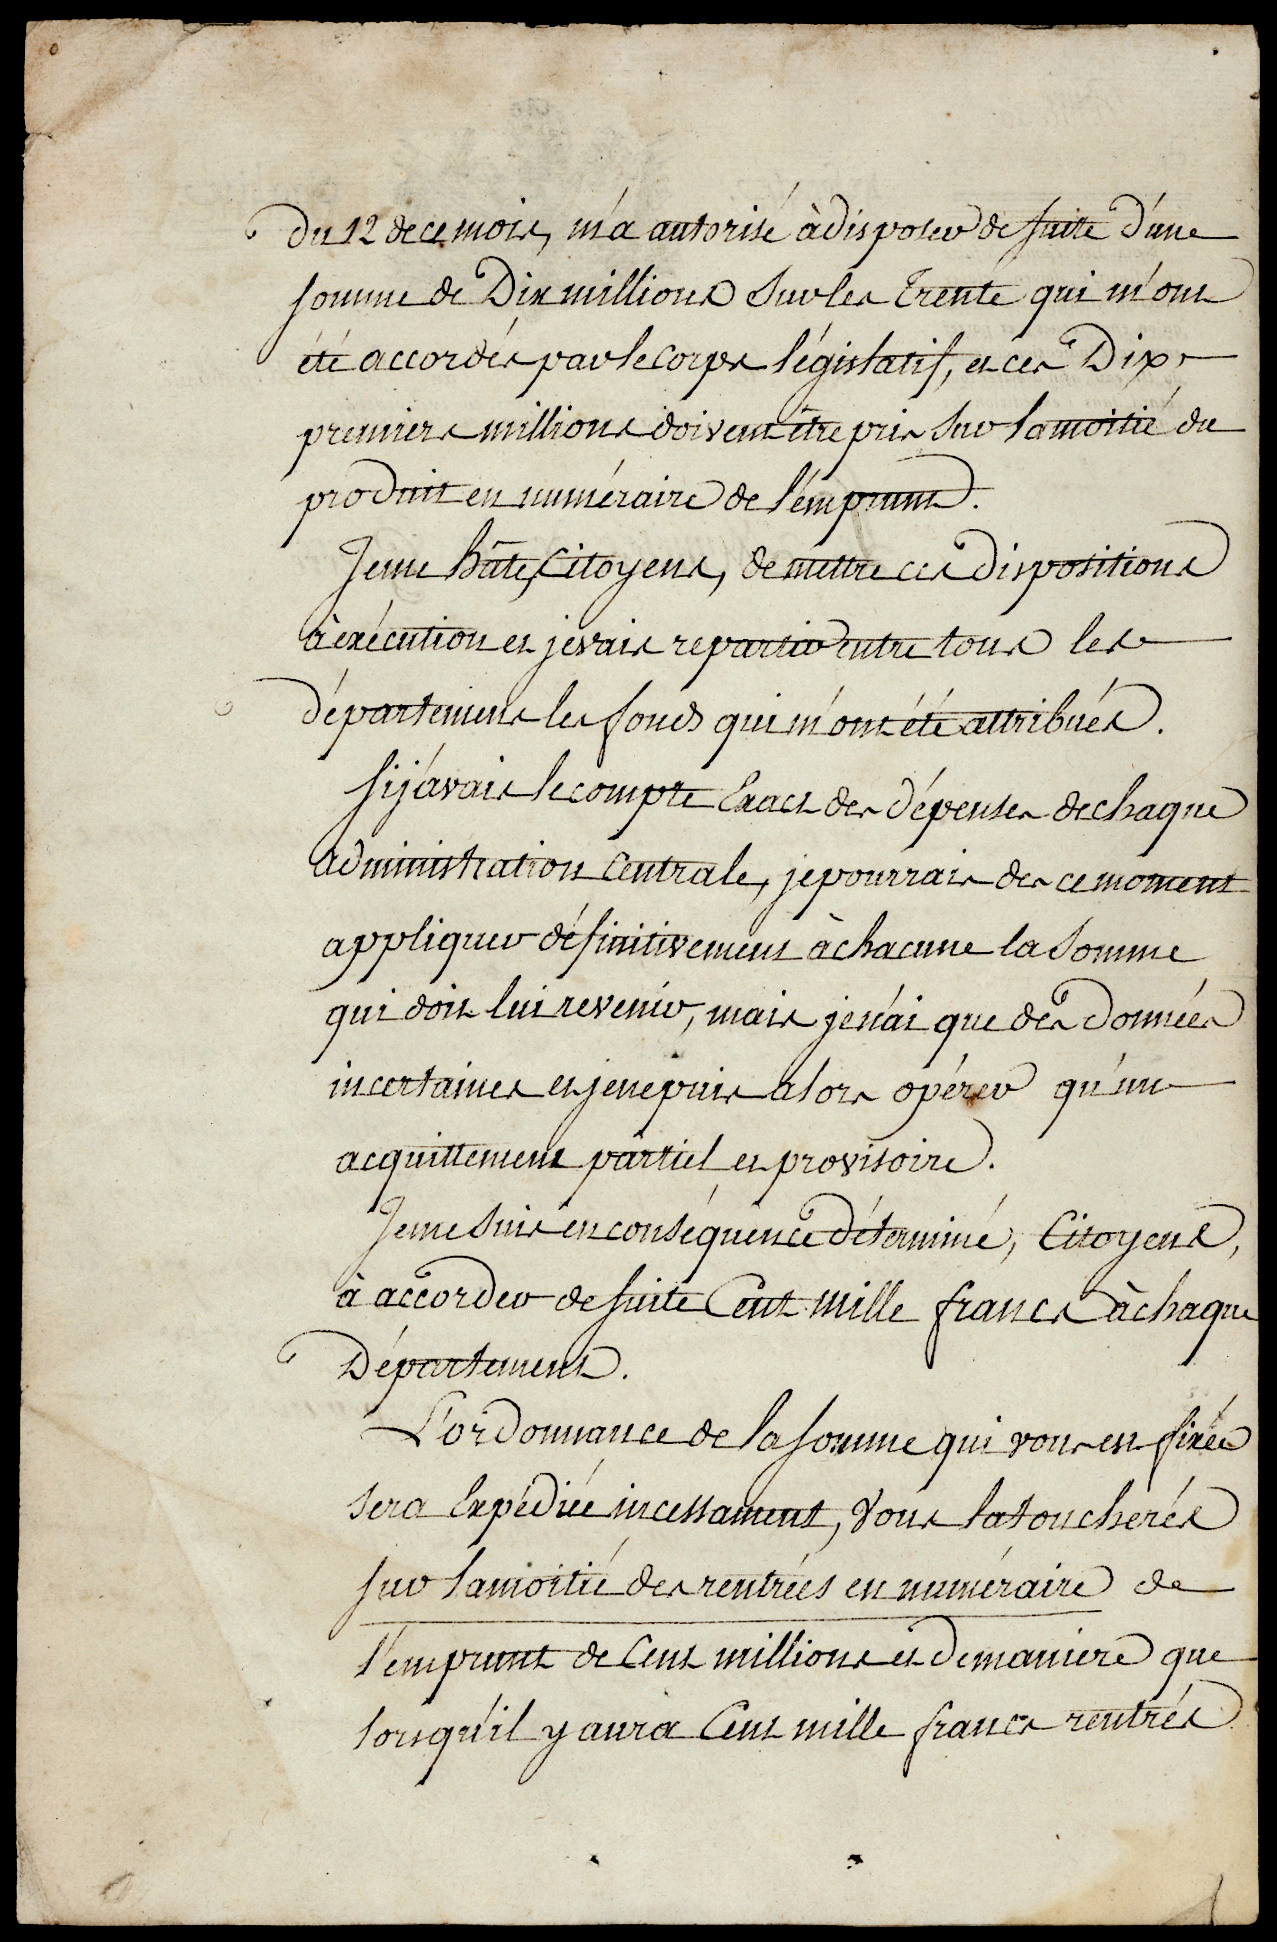 du 12 de ce mois, m'a autorisé à disposer de suite d'une
somme de Dix millions sur les trente qui m'ont
été accordés par le corps législatif, et ces Dix
premiers millions doivent être pris sur la moitié du
produit en numéraire de l'émprunt.
Je me hâte, Citoyens, de mettre ces dispositions
à exécution et je vais repartir entre tous les
départemens les fonds qui m'ont été attribués.
Si j'avais le compte Exact des dépenses de chaque
administration Centrale, je pourrais des ce moment
appliquer définitivement à chacune la somme
qui doit lui revenir, mais je n'ai que des données
incertaines et je ne puis alors opérer qu'un
acquittement partiel et provisoire.
Je me suis en conséquence déterminé, Citoyens,
à accorder de suite Cent mille francs à chaque
Département.
L'ordonnance de la somme qui vous est fixée
sera Expédiée incessament, Vous la toucherés
sur la moitié des rentrées en numéraire de
l'emprunt de Cent millions et de maniere que
lorsqu'il y aura Cent mille francs rentrés